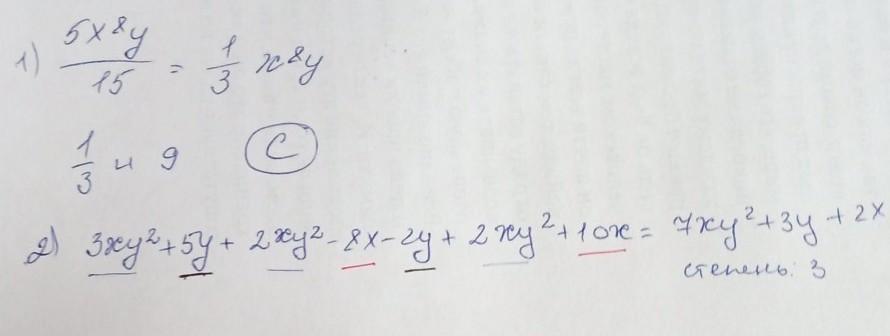 1) 5x⁸y/15 = 1/3 x⁸y
1/3 и 9 C
2) 3xy²+5y+2xy²-8x-2y+2xy²+10x= 7xy²+3y+2x
степень: 3